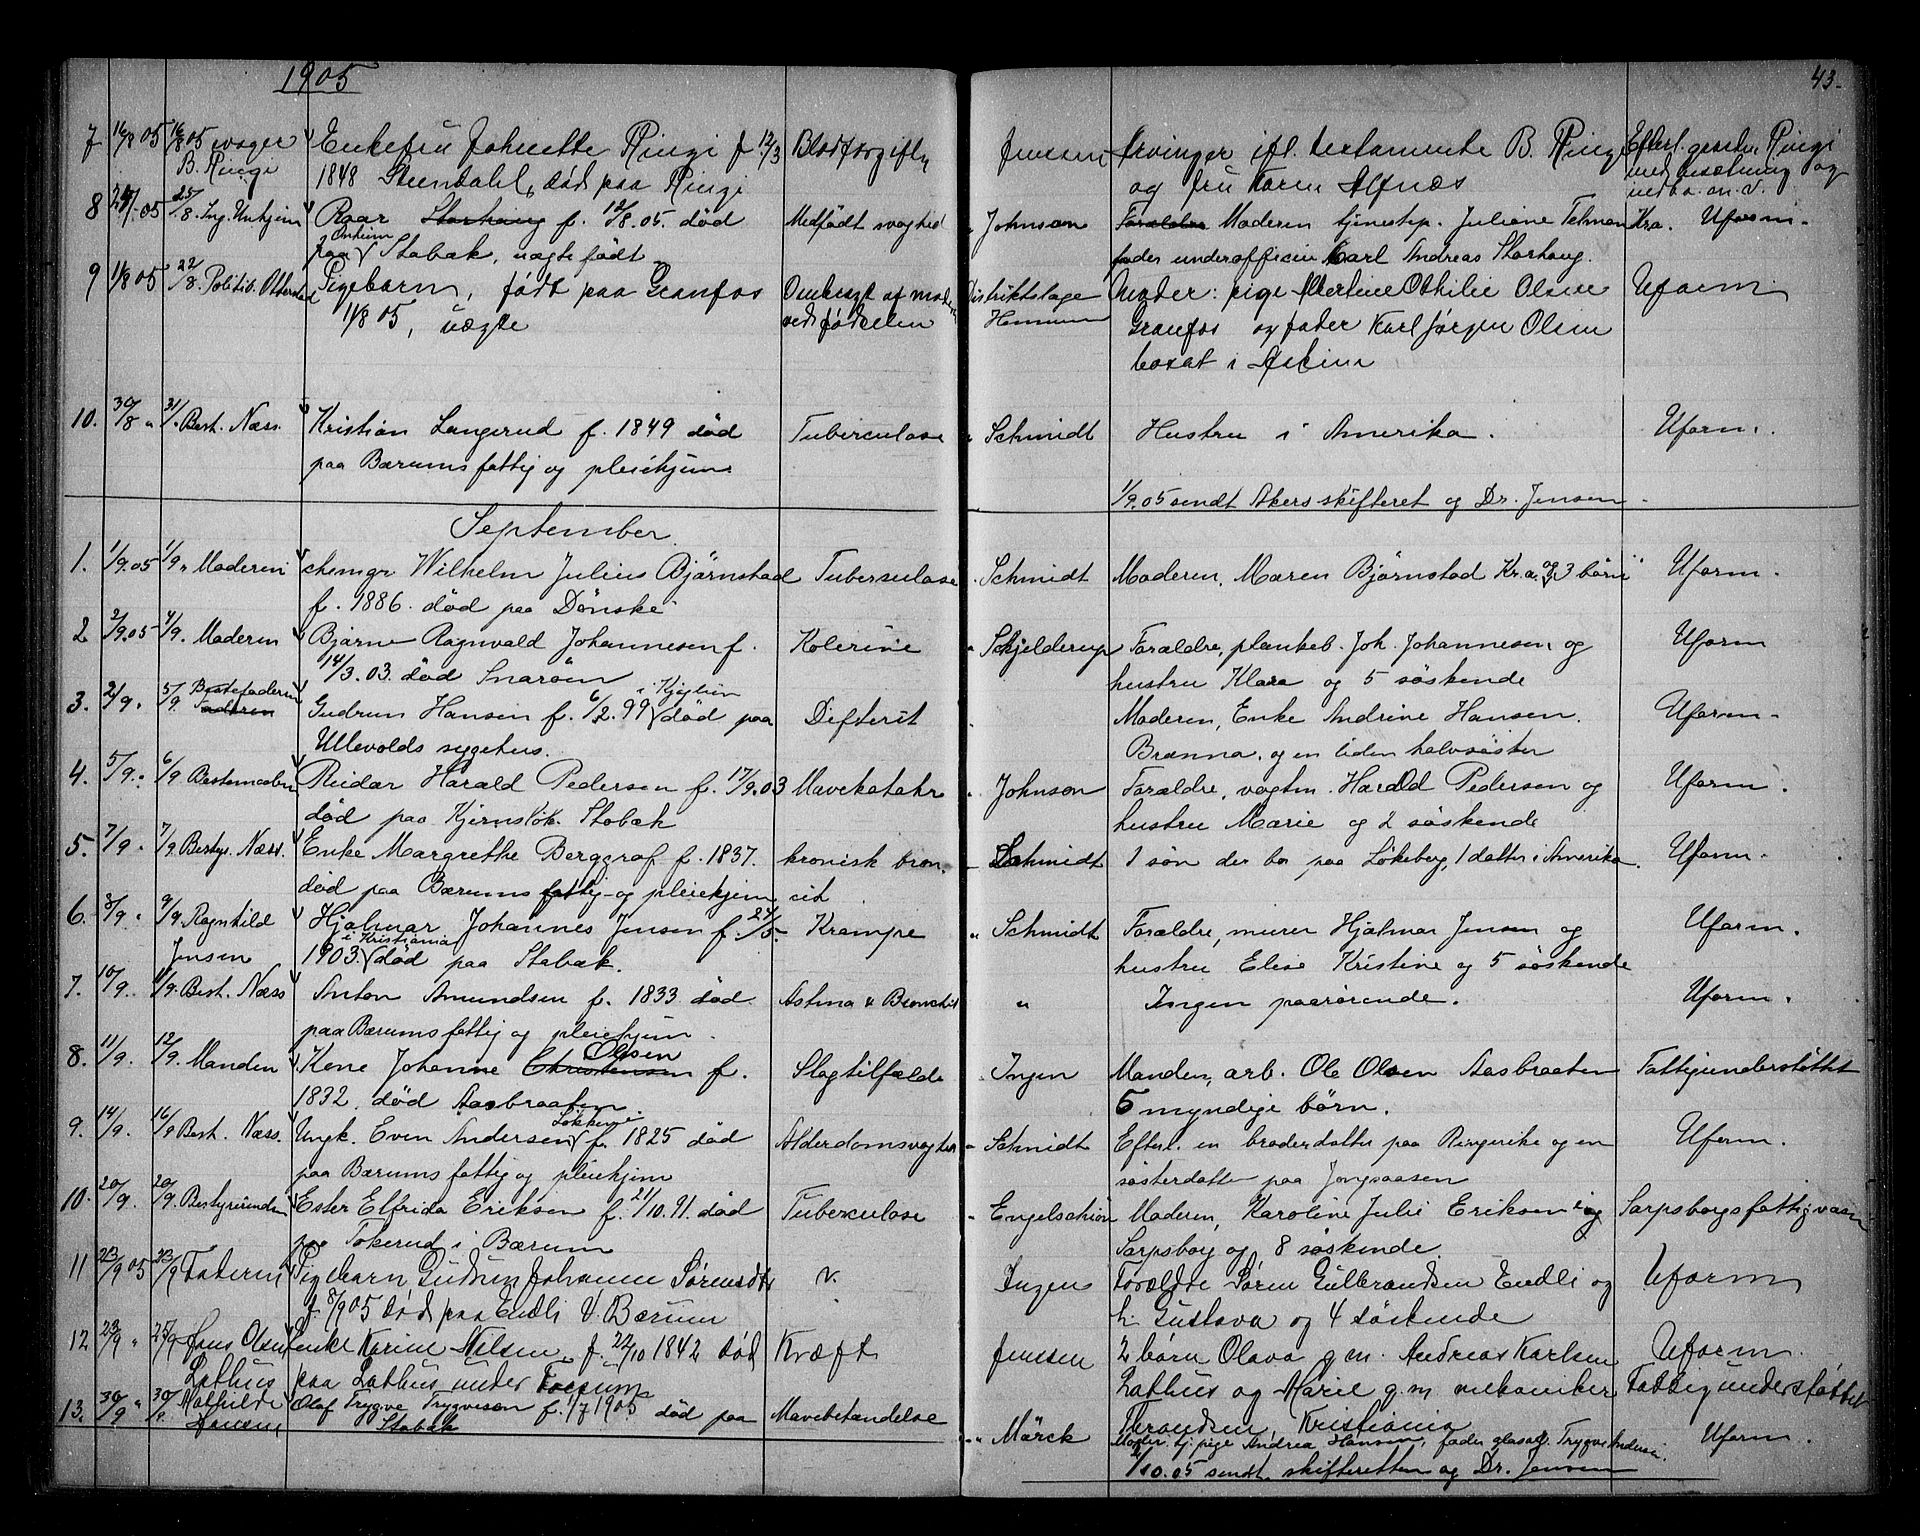 1905
43.
7 16/8 05 16/8 05 svoger Enkefru Johnette Ringi f 12/3 Blodforgiftn Jenssen Arvinger ifl. testamente B. Ringi Efterl. grostn. Ringi
B. Ringi 1848 Steendahl, død paa Ringi og fru Karen Alfnæs med besætning og
indbo. m. v.
8 24/8.05 25/8. Ing. Unhjem Roar Storhaug f. 12/8.05. død Medfødt svaghed " Johnson Forældre Moderen tjenestep. Juliane Telman Kra. Uform.
paa Onheim Stabæk, uægte født fader underofficier Karl Andreas Storhaug.
9 11/8 05 22/8. Politib. Pigebarn, født paa Granfos Ombragt af moderen Distriktslæge Moder: pige Martine Othilie Olsen Uform.
11/8 05, uægte ved fødselen Granfos og fader Karl Jørgen Olsen
bosat i Askim
10. 30/8 " 31/. Best. Næss. Kristian Langerud f. 1849 død Tuberculose " Schmidt Hustru i Amerika. Uform.
paa Bærums fattig og pleiehjem
1/9.05 sendt Akersskifteret og Dr. Jensen
September
1. 1/9.05 1/9. Moderen chemgr Wilhelm Julius Bjørnstad Tuberculose " Schmidt Moderen, Maren Bjørnstad Kr.a. og 3 børn Uform.
f. 1886. død paa Dønske
2 2/9.05 4/9. Moderen Bjarne Ragnvald Johannesen f. Kolerine " Schjelderup Forældre, plankeb. Joh. Johannesen og Uform
14/3.03. død Snarøen hustru Klara og 5 søskende
3. 2/9. 5/9 Bestefaderen Faderen Gudrun Hansen f. 6/2.99 død paa Difterit " Moderen, Enke Andrine Hansen. Uform.
Ullevolds sygehus. Brænna, og en liden halvsøster
4. 5/9. 6/9 Bestemoderen Reidar Harald Pedersen f. 17/9.03 Mavekatahr " Johnson Forældre, vogtm. Harald Pedersen og Uform.
død paa Kjernsløk. Stabæk hustru Marie og 2 søskende
5. 7/9. 7/9 Bestyr. Næss. Enke Margrethe Berggraf f. 1837. kronisk bron. " Schmidt 1 søn der bor paa Løkeberg, 1 datter i Amerika. Uform.
død paa Bærums fattig- og pleiehjem cit
6. 8/9. 9/9 Ragnhild Hjalmar Johannes Jensen f. 24/5. Krampe " Schmidt Forældre, murer Hjalmar Jensen og Uform.
Jensen 1903. i Kristiania død paa Stabæk. hustru Elise Kristine og 5 søskende
7. 10/9. 11/9. Best. Næss Anton Amundsen f. 1833 død Astma & Bronchit " Ingen paarørende. Uform.
paa Bærums fattig og pleiehjem.
8. 11/9. 12/9. Manden Kone Johanne Christensen Olsen f. Slagtilfælde " Ingen Manden, arb. Ole Olsen Aasbraaten Fattigunderstøttet
1832. død Aasbraaten. 5 myndige børn.
9. 14/9. 16/9 Best. Næss. Ungk. Even Andersen Løkken f. 1825 død Alderdomsvaghed " Schmidt Efterl. en broderdatter paa Ringerike og en Uform.
paa Bærums fattig og pleiehjem søsterdatter paa Jongsaasen
10. 20/9. 20/9. Bestyrerinden Ester Elfrida Eriksen f. 21/10.91. død Tuberculose " Engelschiøn Moderen, Karoline Julie Eriksen Sarpsborgs fattigvæsn
paa Tokerud i Bærum Sarpsborg og 8 søskende.
11 23/9 05 23/9 Faderen Pigebarn Gudrun Johanne Sørensdtr v. Ingen Forældre Søren Gulbrandsen Endli og Uform
f. 8/9 05 død paa Endli V. Bærum h. Gustava og 4 søskende
12 23/9 " 25/9 Hans Olsen Enke Karine Nilsen f. 22/10 1842 død Kræft Jenssen 2 børn Olava g.m. Andreas Karlsen Uform.
Lathus paa Lathus under Fossum Lathus og Marie g.m. mekaniker Fattigunderstøttet
13. 30/9 " 30/9. Mathilde Olaf Trygve Trygveson f. 1/7 1905 død paa Mavebetændelse " Mörck Thrandsen, Kristiania
Hansen Stabæk Moder: tj. pige Andrea Hansen, fader glasarb. Trygve Andersen. Uform.
2/10.05 sendt skifteretten og Dr. Jensen